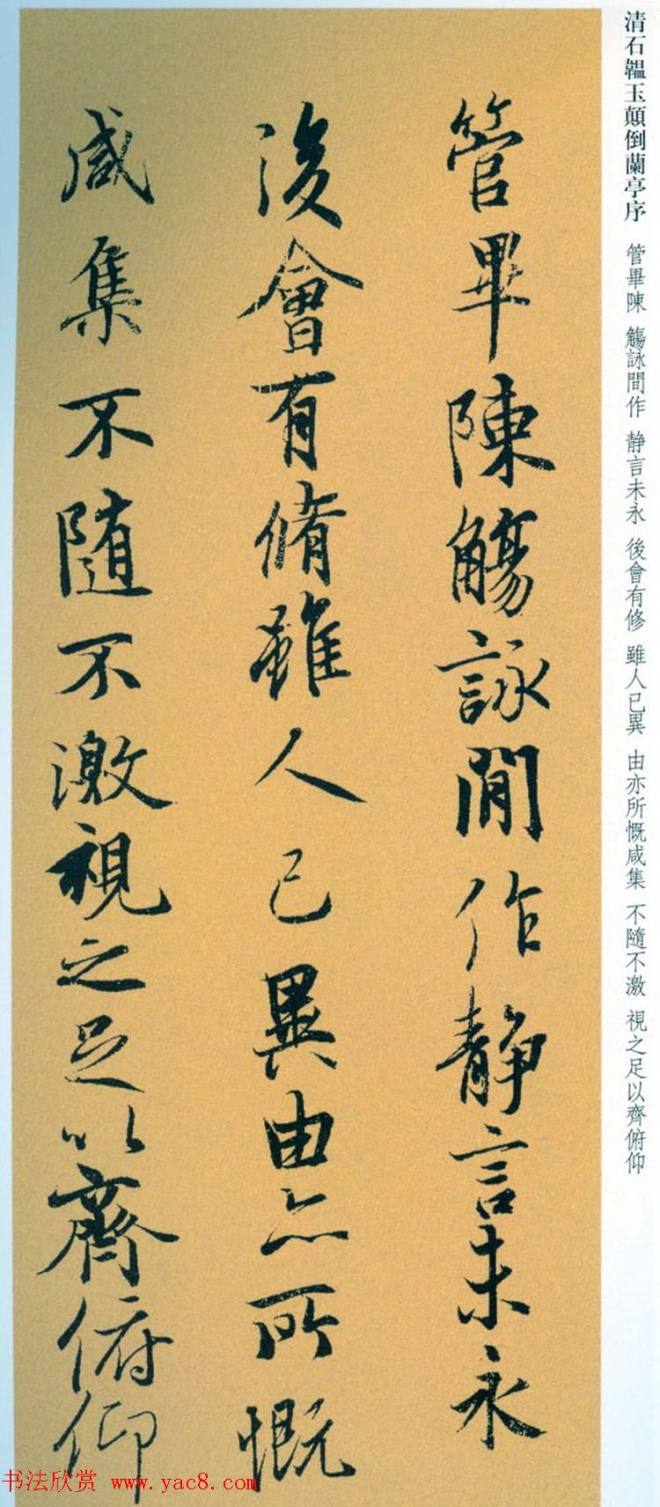 清石韞玉顛倒蘭亭序 管畢陳 觴詠間作 靜言未永 後會有修 雖人已異 由亦所慨咸集 不隨不激 視之足以齊俯仰
管畢陳觴詠間作靜言未永
後會有脩雖人已異由亦所慨
咸集不隨不激視之足以齊俯仰
书法欣赏 www.yac8.com